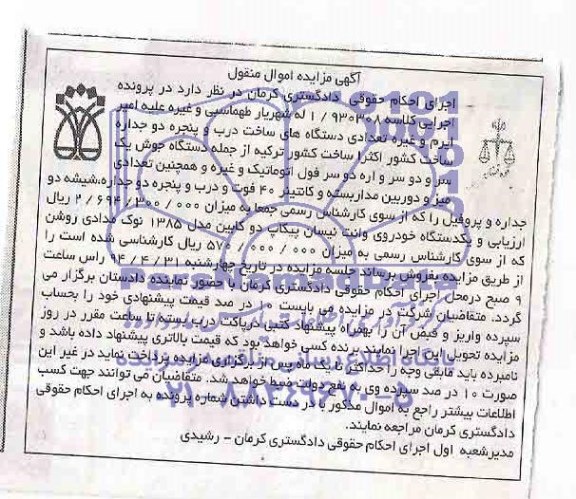 آگهی مزایده اموال منقول
اجرای احکام حقوقی دادگستری کرمان در نظر دارد در پرونده
اجرایی کلاسه ۹۳۰۳۰۸ / ۱ له شهریار طهماسبی و غیره علیه امیر
ایرم و غیره تعدادی دستگاه های ساخت درب و پنجره دو جداره
ساخت کشور اکثرا ساخت کشور ترکیه از جمله دستگاه جوش یک
سر و دو سر و اره دو سر فول اتوماتیک و غیره و همچنین تعدادی
میز و دوربین مداربسته و کانتینر ۴۰ فوت و درب و پنجره دو جداره،شیشه دو
جداره و پروفیل را که از سوی کارشناس رسمی جمعا به میزان ۰۰۰ / ۳۰۰ / ۶۹۴ / ۲ ریال
ارزیابی و یکدستگاه خودروی وانت نیسان پیکاپ دو کابین مدل ۱۳۸۵ نوک مدادی روشن
که از سوی کارشناس رسمی به میزان ۰۰۰ / ۰۰۰ / ۵۷۰ ریال کارشناسی شده است را
از طریق مزایده بفروش برساند جلسه مزایده در تاریخ چهارشنبه ۹۴/۴/۳۱ راس ساعت
۹ صبح درمحل اجرای احکام حقوقی دادگستری کرمان با حضور نماینده دادستان برگزار می
گردد. متقاضیان شرکت در مزایده می بایست ۱۰ در صد قیمت پیشنهادی خود را بحساب
سپرده واریز و قبض آن را بهمراه پیشنهاد کتبی درپاکت درب بسته تا ساعت مقرر در روز
مزایده تحویل این اجرا نمایند.برنده کسی خواهد بود که قیمت بالاتری پیشنهاد داده باشد و
نامبرده باید مابقی وجه را حداکثر تا یک ماه پس از برگزاری مزایده پرداخت نماید در غیر این
صورت ۱۰ در صد سپرده وی به نفع دولت ضبط خواهد شد. متقاضیان می توانند جهت کسب
اطلاعات بیشتر راجع به اموال مذکور با در دست داشتن شماره پرونده به اجرای احکام حقوقی
دادگستری کرمان مراجعه نمایند.
مدیرشعبه اول اجرای احکام حقوقی دادگستری کرمان - رشیدی
۰۲۱-۸۸۳۴۹۶۷۰-۵